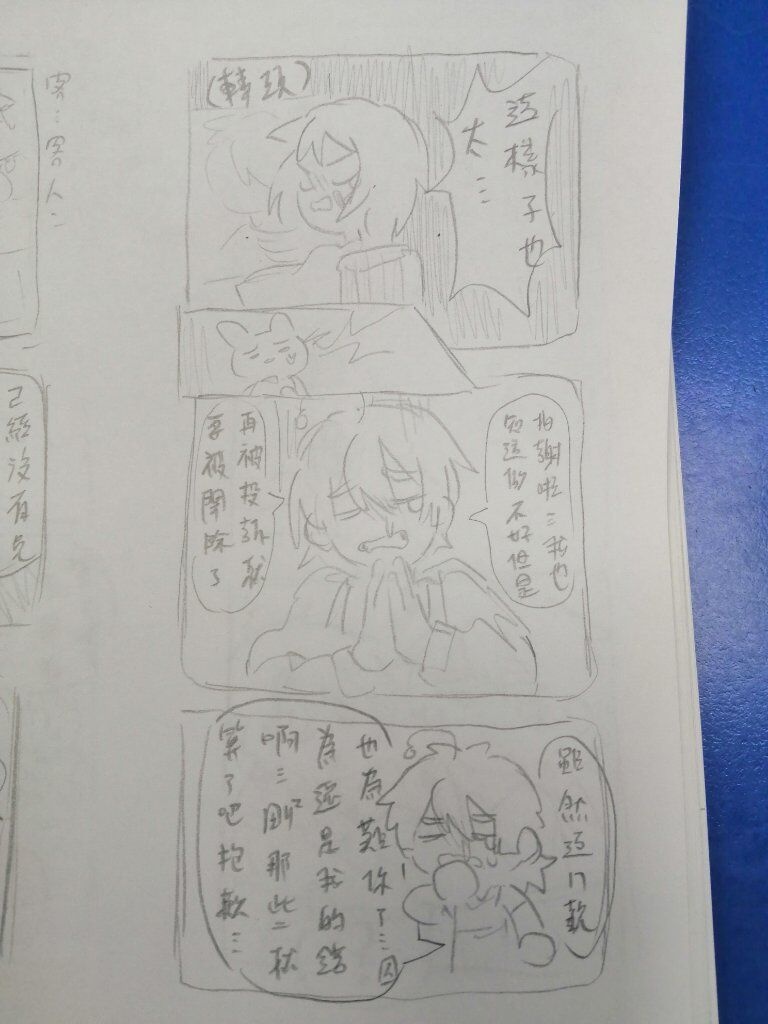 這樣子也
太⋯
(轉頭)
拍謝啦⋯我也
知道做不好但是
再被投訴就
要被開除了
雖然這ㄇ說
也為難你了⋯因
為還是我的錯
啊⋯剛那些二杯
算了吧抱歉⋯
客⋯客人⋯
已經沒有